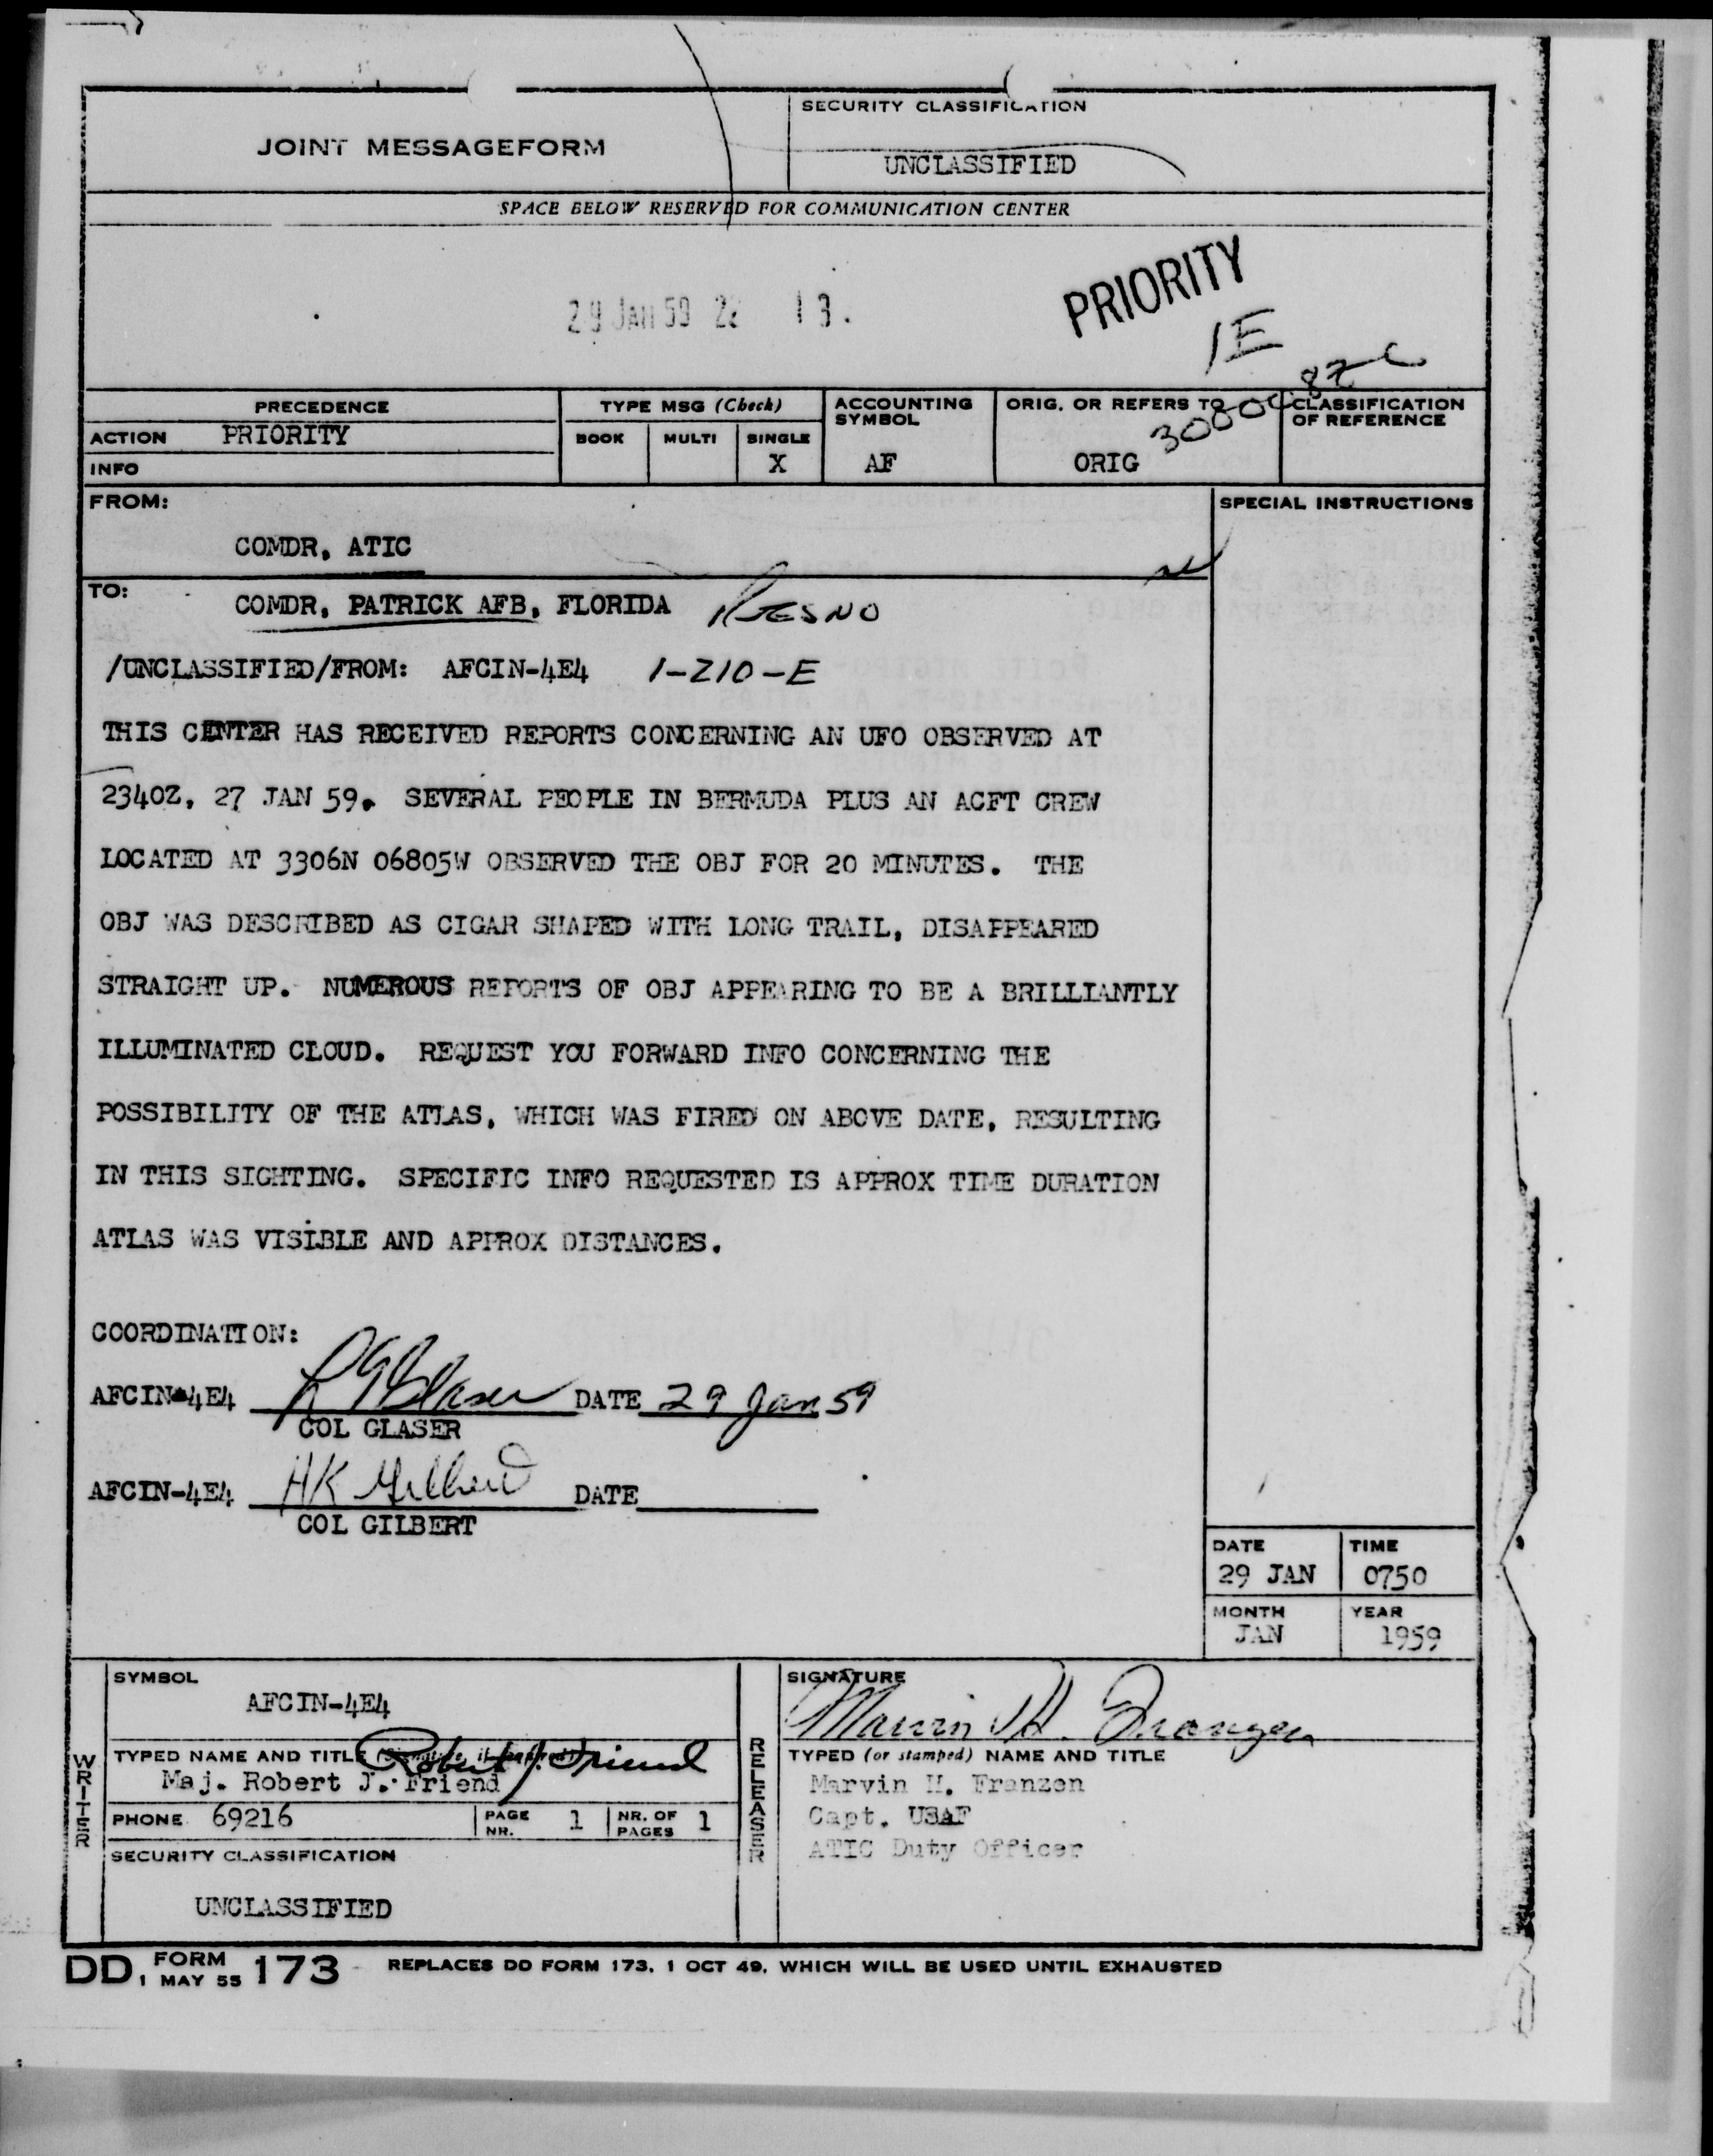 JOINT MESSAGEFORM
SECURITY CLASSIFICATION
UNCLASSIFIED
SPACE BELOW RESERVED FOR COMMUNICATION CENTER
29 JAN 59 22 13.
PRIORITY
1E
PRECEDENCE
ACTION PRIORITY
INFO
TYPE MSG (Check)
BOOK MULTI SINGLE
X
ACCOUNTING
SYMBOL
AF
ORIG. OR REFERS TO
ORIG
CLASSIFICATION
OF REFERENCE
FROM:
COMDR, ATIC
SPECIAL INSTRUCTIONS
TO:
COMDR, PATRICK AFB, FLORIDA
/UNCLASSIFIED/FROM: AFCIN-4E4 1-210-E
THIS CENTER HAS RECEIVED REPORTS CONCERNING AN UFO OBSERVED AT
2340Z, 27 JAN 59. SEVERAL PEOPLE IN BERMUDA PLUS AN ACFT CREW
LOCATED AT 3306N 06805W OBSERVED THE OBJ FOR 20 MINUTES. THE
OBJ WAS DESCRIBED AS CIGAR SHAPED WITH LONG TRAIL, DISAPPEARED
STRAIGHT UP. NUMEROUS REPORTS OF OBJ APPEARING TO BE A BRILLIANTLY
ILLUMINATED CLOUD. REQUEST YOU FORWARD INFO CONCERNING THE
POSSIBILITY OF THE ATLAS, WHICH WAS FIRED ON ABOVE DATE, RESULTING
IN THIS SIGHTING. SPECIFIC INFO REQUESTED IS APPROX TIME DURATION
ATLAS WAS VISIBLE AND APPROX DISTANCES.
COORDINATION:
AFCIN-4E4 DATE 29 Jan 59
COL GLASER
AFCIN-4E4 HK Gilbert DATE
COL GILBERT
DATE
29 JAN
TIME
0750
MONTH
JAN
YEAR
1959
WRITER
SYMBOL
AFCIN-4E4
TYPED NAME AND TITLE
Robert J. Friend
Maj. Robert J. Friend
PHONE 69216
PAGE NR. 1
NR. OF PAGES 1
SECURITY CLASSIFICATION
UNCLASSIFIED
RELEASER
SIGNATURE
Marvin H. Franzen
TYPED (or stamped) NAME AND TITLE
Marvin H. Franzen
Capt. USAF
ATIC Duty Officer
DD FORM 1 MAY 55 173 REPLACES DD FORM 173, 1 OCT 49, WHICH WILL BE USED UNTIL EXHAUSTED